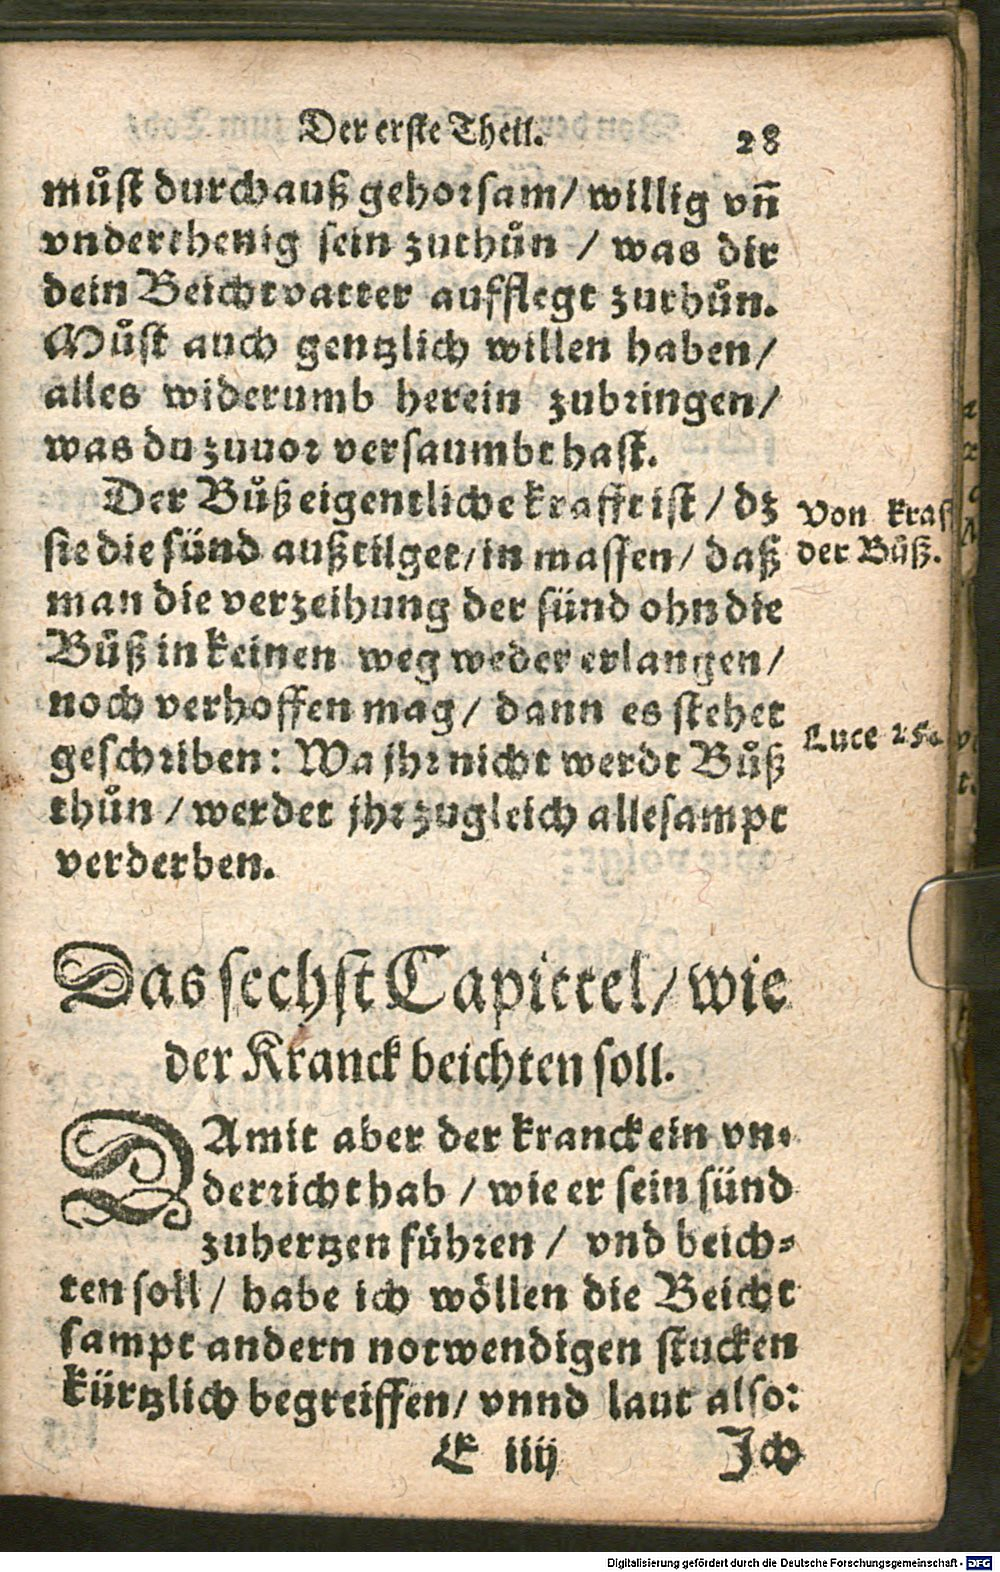 Der erste Theil.
28
můst durchauß gehorsam/ willig vn̄
vnderthenig sein zuthůn / was dir
dein Beichtvatter aufflegt zuthůn.
Můst auch gentzlich willen haben/
alles widerumb herein zubringen/
was du zuuor versaumbt hast.
Der Bůß eigentliche krafft ist / dz
sie die sünd außtilget/ in massen/ daß
man die verzeihung der sünd ohn die
Bůß in keinen weg weder erlangen/
noch verhoffen mag/ dann es stehet
geschriben: Wa jhr nicht werdt Bůß
thůn / werdet jhr zugleich allesampt
verderben.
Von kraf
der Bůß.
Luce
Das sechst Capittel/ wie
der Kranck beichten soll.
DAmit aber der kranck ein vn-
derricht hab / wie er sein sünd
zuhertzen führen / vnd beich-
ten soll/ habe ich wöllen die Beicht
sampt andern notwendigen stucken
kürtzlich begreiffen/ vnnd laut also:
E iiij
Ich
Digitalisierung gefördert durch die Deutsche Forschungsgemeinschaft - DFG